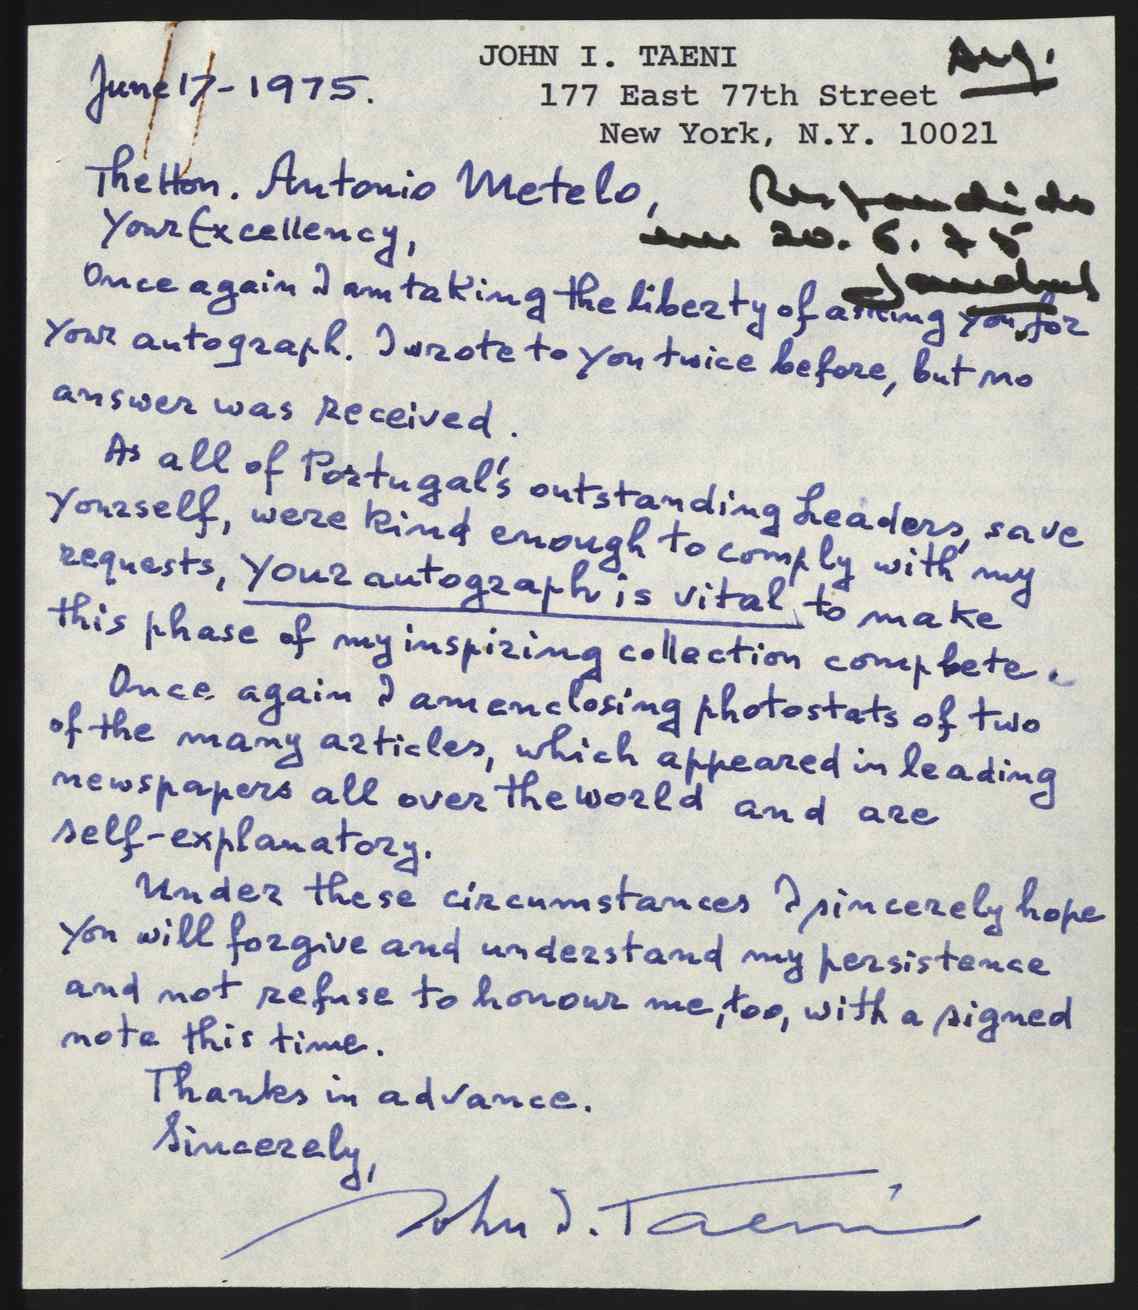 JOHN I. TAENI
177 East 77th Street
New York, N.Y. 10021
Arq.
June 17-1975.
The Hon. Antonio Metelo,
Respondido
em 20.6.75
Your Excellency,
Once again I am taking the liberty of asking you for
your autograph. I wrote to you twice before, but no
answer was received.
As all of Portugal's outstanding Leaders, save
yourself, were kind enough to comply with my
requests, your autograph is vital to make
this phase of my inspiring collaction complete.
Once again I am enclosing photostats of two
of the many articles, which appeared in leading
newspapers all over the world and are
self-explanatory.
Under these circumstances I sincerely hope
you will forgive and understand my persistence
and not refuse to honour me, too, with a signed
note this time.
Thanks in advance.
Sincerely,
John I. Taeni